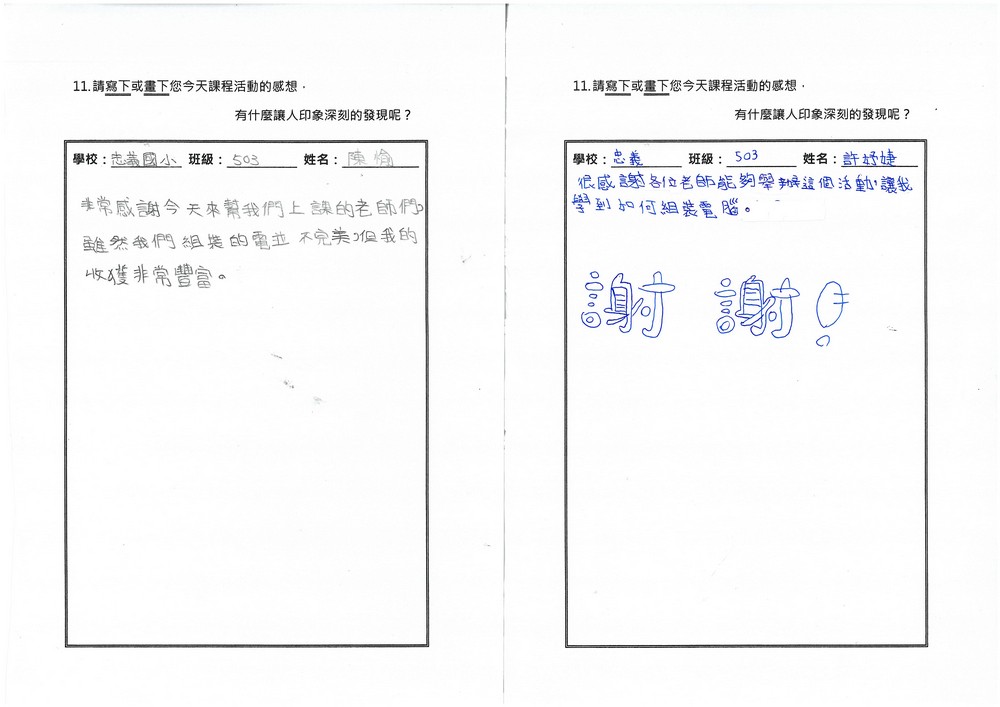 11.請寫下或畫下您今天課程活動的感想，
有什麼讓人印象深刻的發現呢？
學校：忠義國小 班級：503 姓名：陳愉
非常感謝今天來幫我們上課的老師們。
雖然我們組裝的電並不完美，但我的
收獲非常豐富。
11.請寫下或畫下您今天課程活動的感想，
有什麼讓人印象深刻的發現呢？
學校：忠義 班級：503 姓名：許妤婕
很感謝各位老師能夠舉辦這個活動，讓我
學到如何組裝電腦。
謝謝！